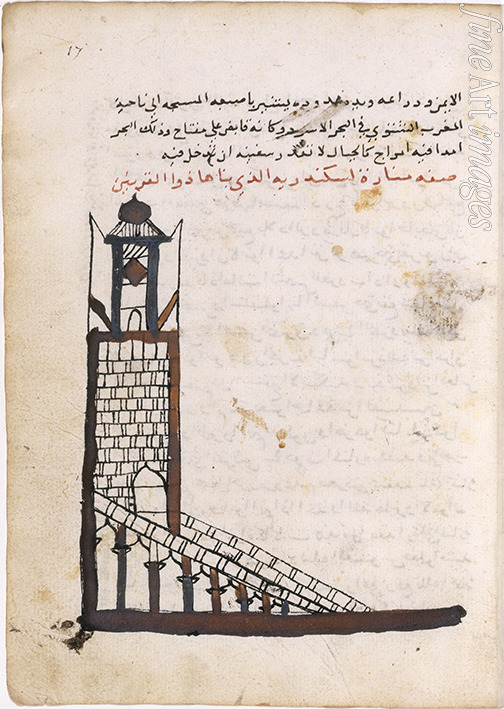 الايمن ودراعه ويده ممدوده يشير باصبعه المسبحه الى ناحيه
المغرب الشتوي في البحر الاسود وكانه قابض على مفتاح وذلك البحر
ابدا فيه امواج كالجبال لا تقدر سفينه ان تدخل فيه
صفه منارة اسكندريه الذي بناها ذوا القرنين
fineArtimages